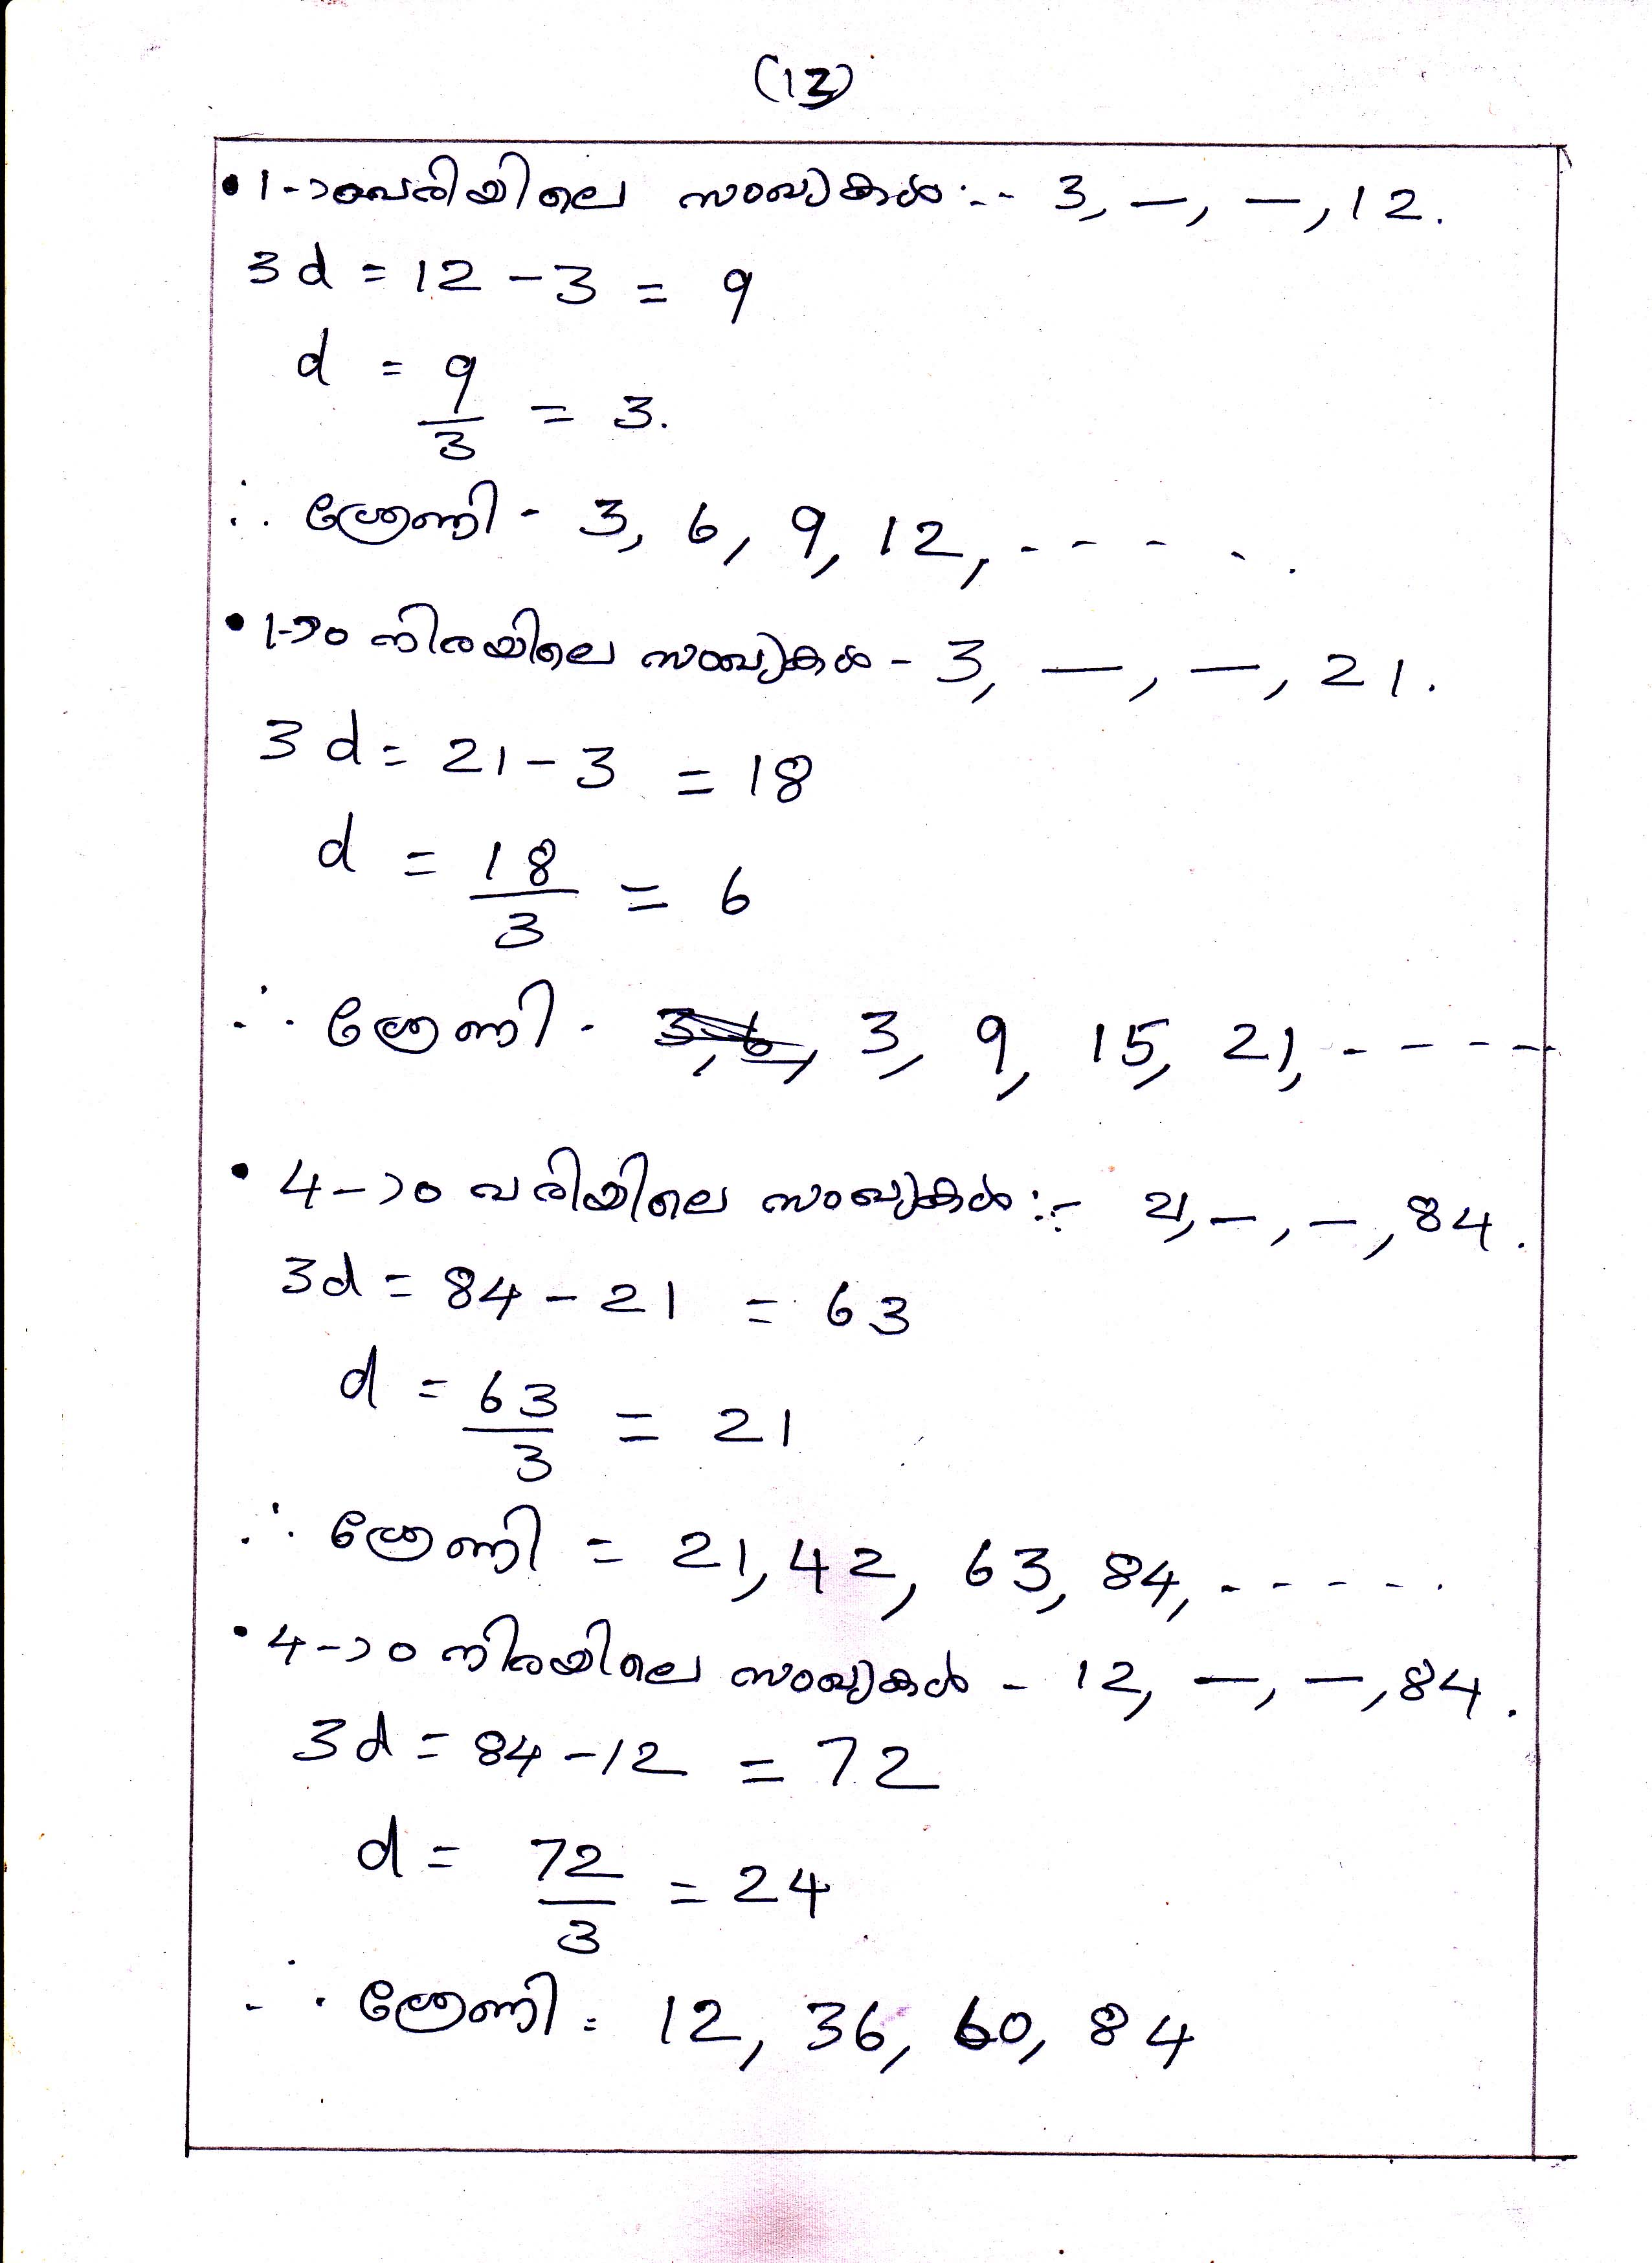 (13)
• 1-ാം വരിയിലെ സംഖ്യകൾ :- 3, —, —, 12.
3d = 12 - 3 = 9
d = 9/3 = 3.
∴ ശ്രേണി - 3, 6, 9, 12, - - - - .
• 1-ാം നിരയിലെ സംഖ്യകൾ - 3, —, —, 21.
3d = 21 - 3 = 18
d = 18/3 = 6
∴ ശ്രേണി - 3, 9, 15, 21, - - - - -
• 4-ാം വരിയിലെ സംഖ്യകൾ :- 21, —, —, 84.
3d = 84 - 21 = 63
d = 63/3 = 21
∴ ശ്രേണി = 21, 42, 63, 84, - - - - - .
• 4-ാം നിരയിലെ സംഖ്യകൾ - 12, —, —, 84.
3d = 84 - 12 = 72
d = 72/3 = 24
∴ ശ്രേണി = 12, 36, 60, 84